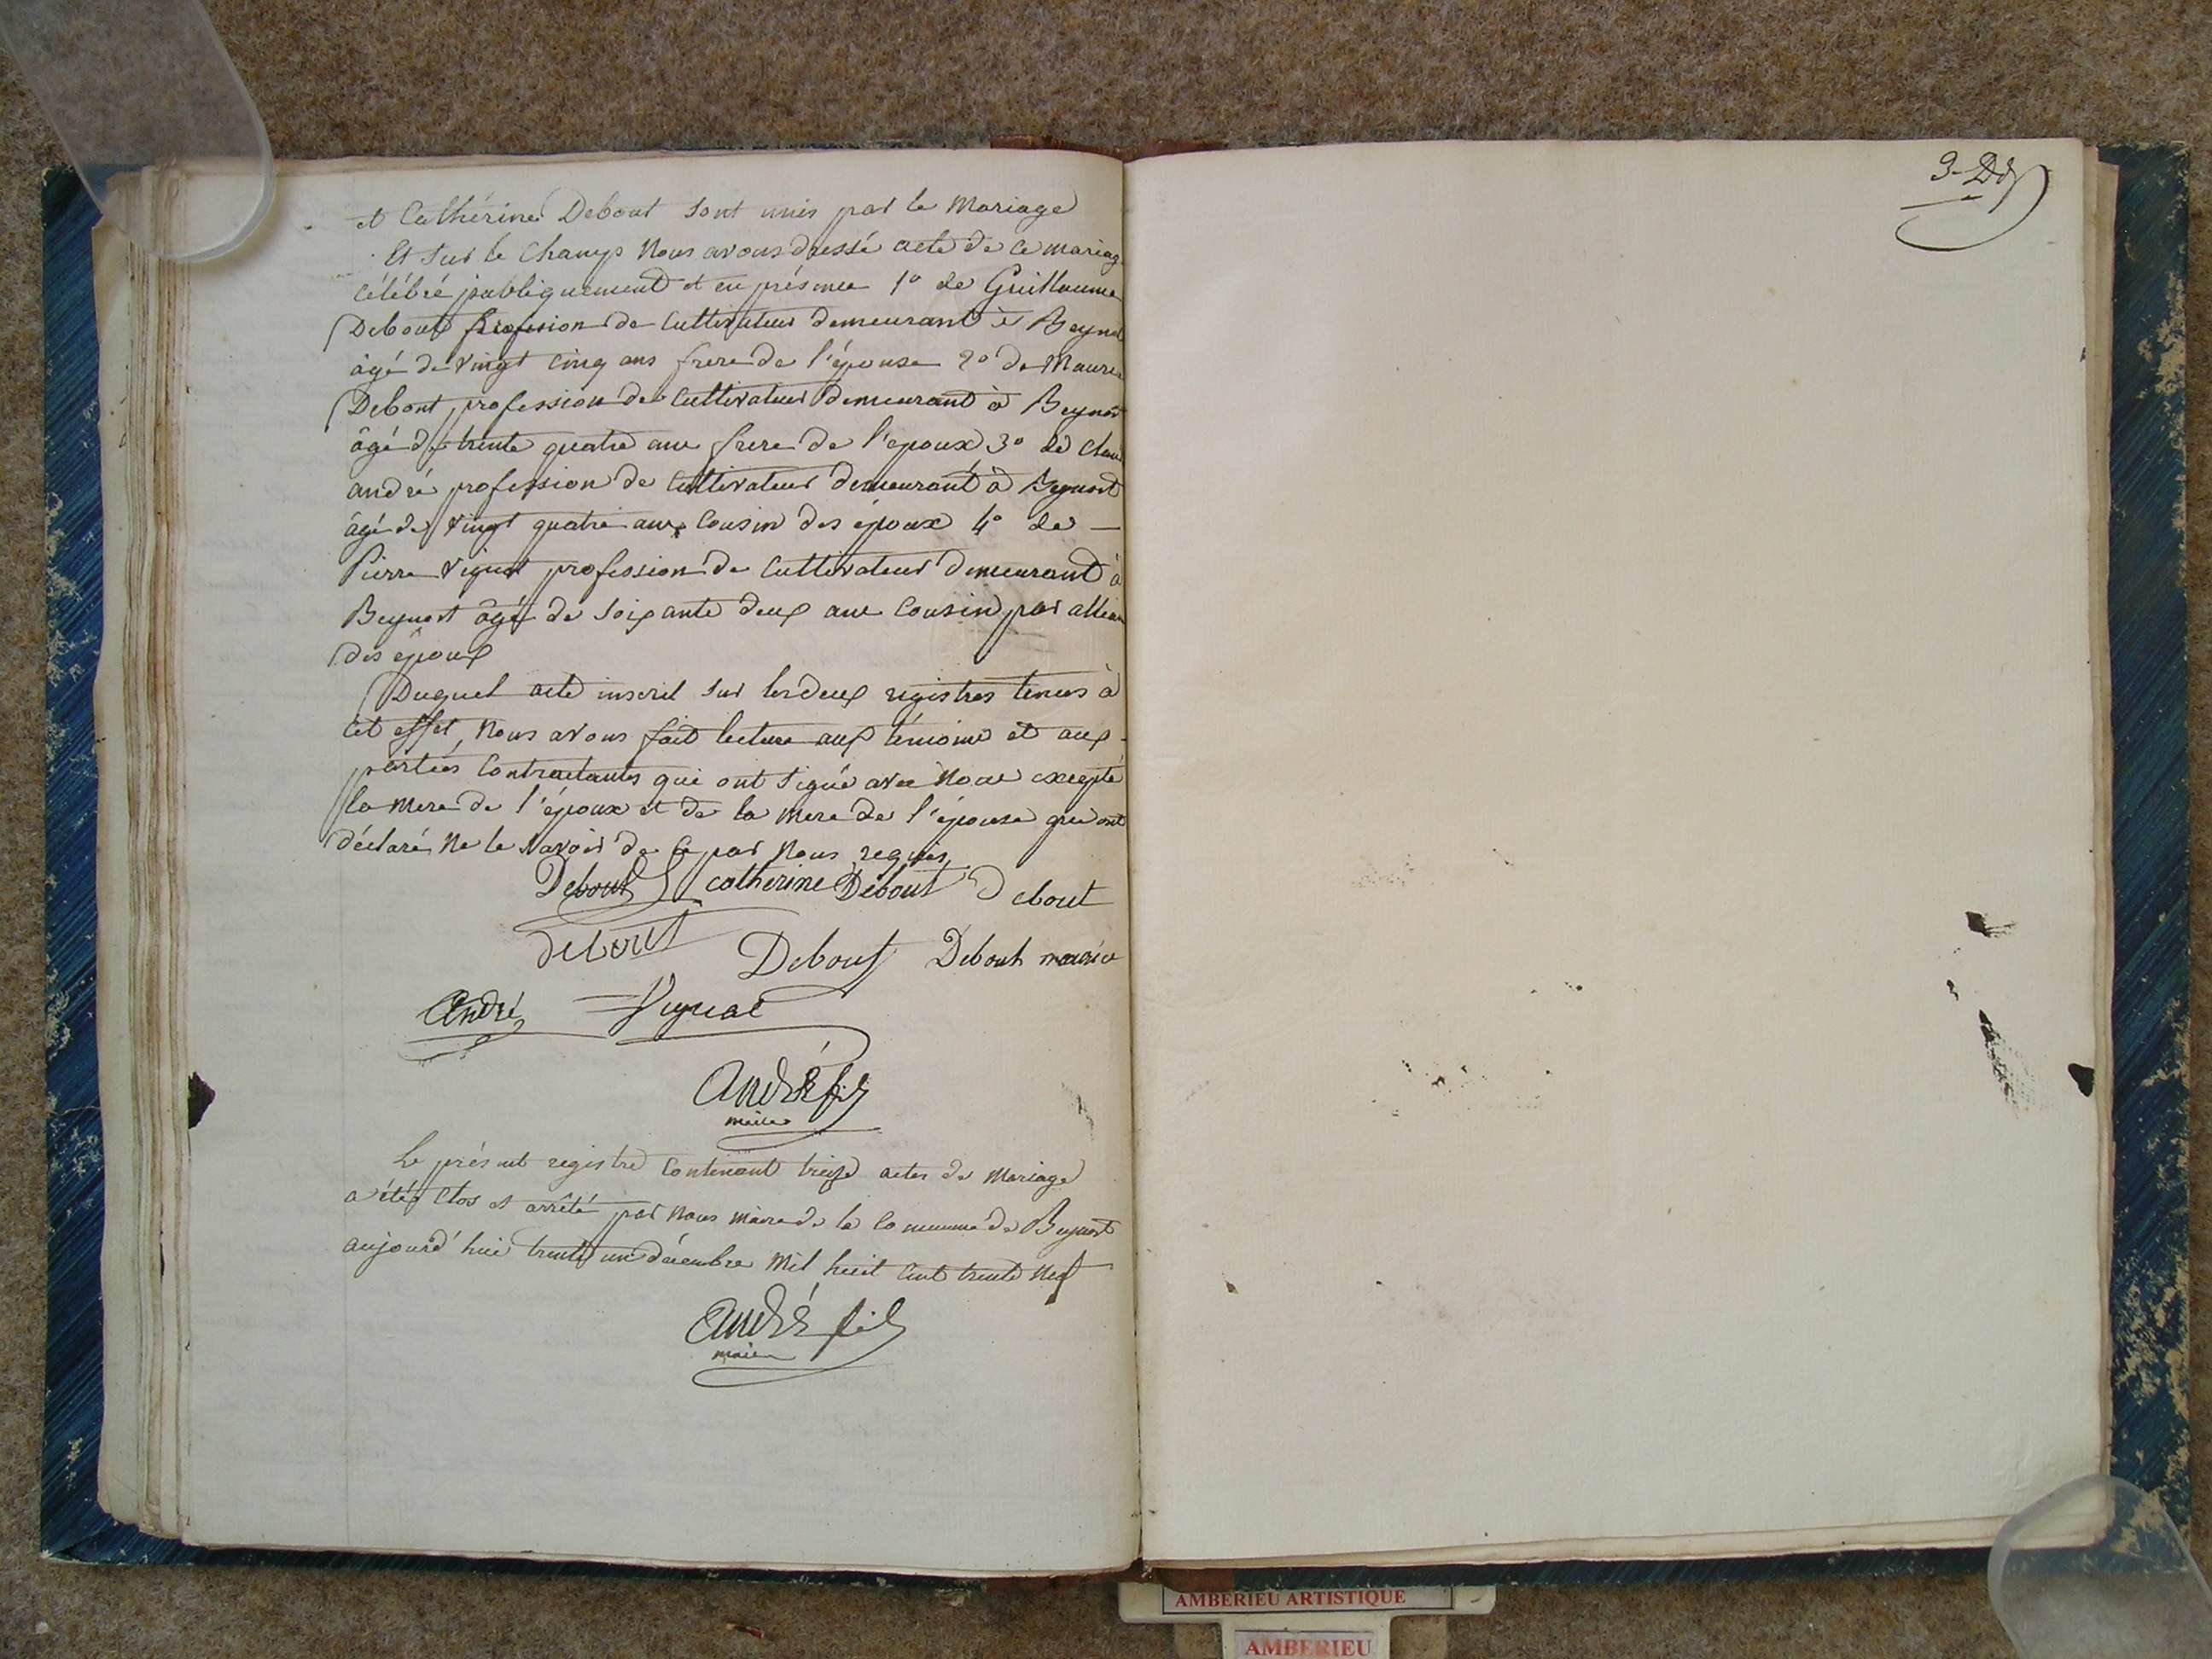 et Cathérine Debout sont unis par le Mariage
Et sur le Champ Nous avons dressé acte de ce mariag
célébré publiquement et en présence 1° de Guillaume
Debout profession de Cultivateur demeurant à Beynost
âgé de vingt cinq ans frere de l'épouse 2° de Maurice
Debout, profession de Cultivateur demeurant à Beynost
âgé de trente quatre ans frere de l'epoux 3° de Clau
andré profession de Cultivateur demeurant à Beynost
âgé de vingt quatre ans Cousin des époux 4° de —
Pierre Vignat profession de Cultivateur demeurant à
Beynost âgé de soixante deux ans Cousin par allian
des epoux
Duquel acte inscrit sur les deux registres tenus à
cet effet, Nous avons fait lecture aux témoins et aux
parties Contractantes qui ont signé avec Nous excepté
la mere de l'époux et de la mere de l'épouse qui ont
déclaré ne le savoir de ce par nous requis,
Debout catherine Debout Debout
debout Debout Debout maurice
André Vignat
André fils
maire
Le présent registre Contenant treize actes de Mariage
a étée Clos et arrêté par Nous maire de la Commune de Beynost
aujourd'hui trente un décembre Mil huit Cent trente neuf
André fils
maire
AMBERIEU ARTISTIQUE
AMBERIEU